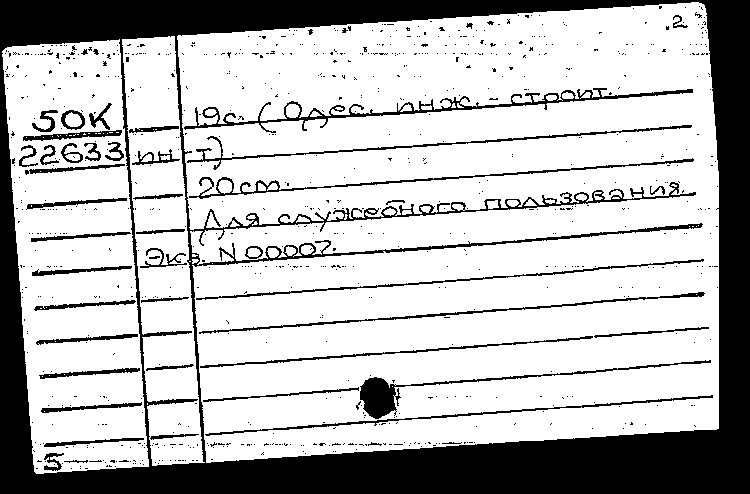 2
50К 19с. (Одес. инж.-строит.
22633 ин-т).
20см.
Для служебного пользования.
Экз. N 00007.
5